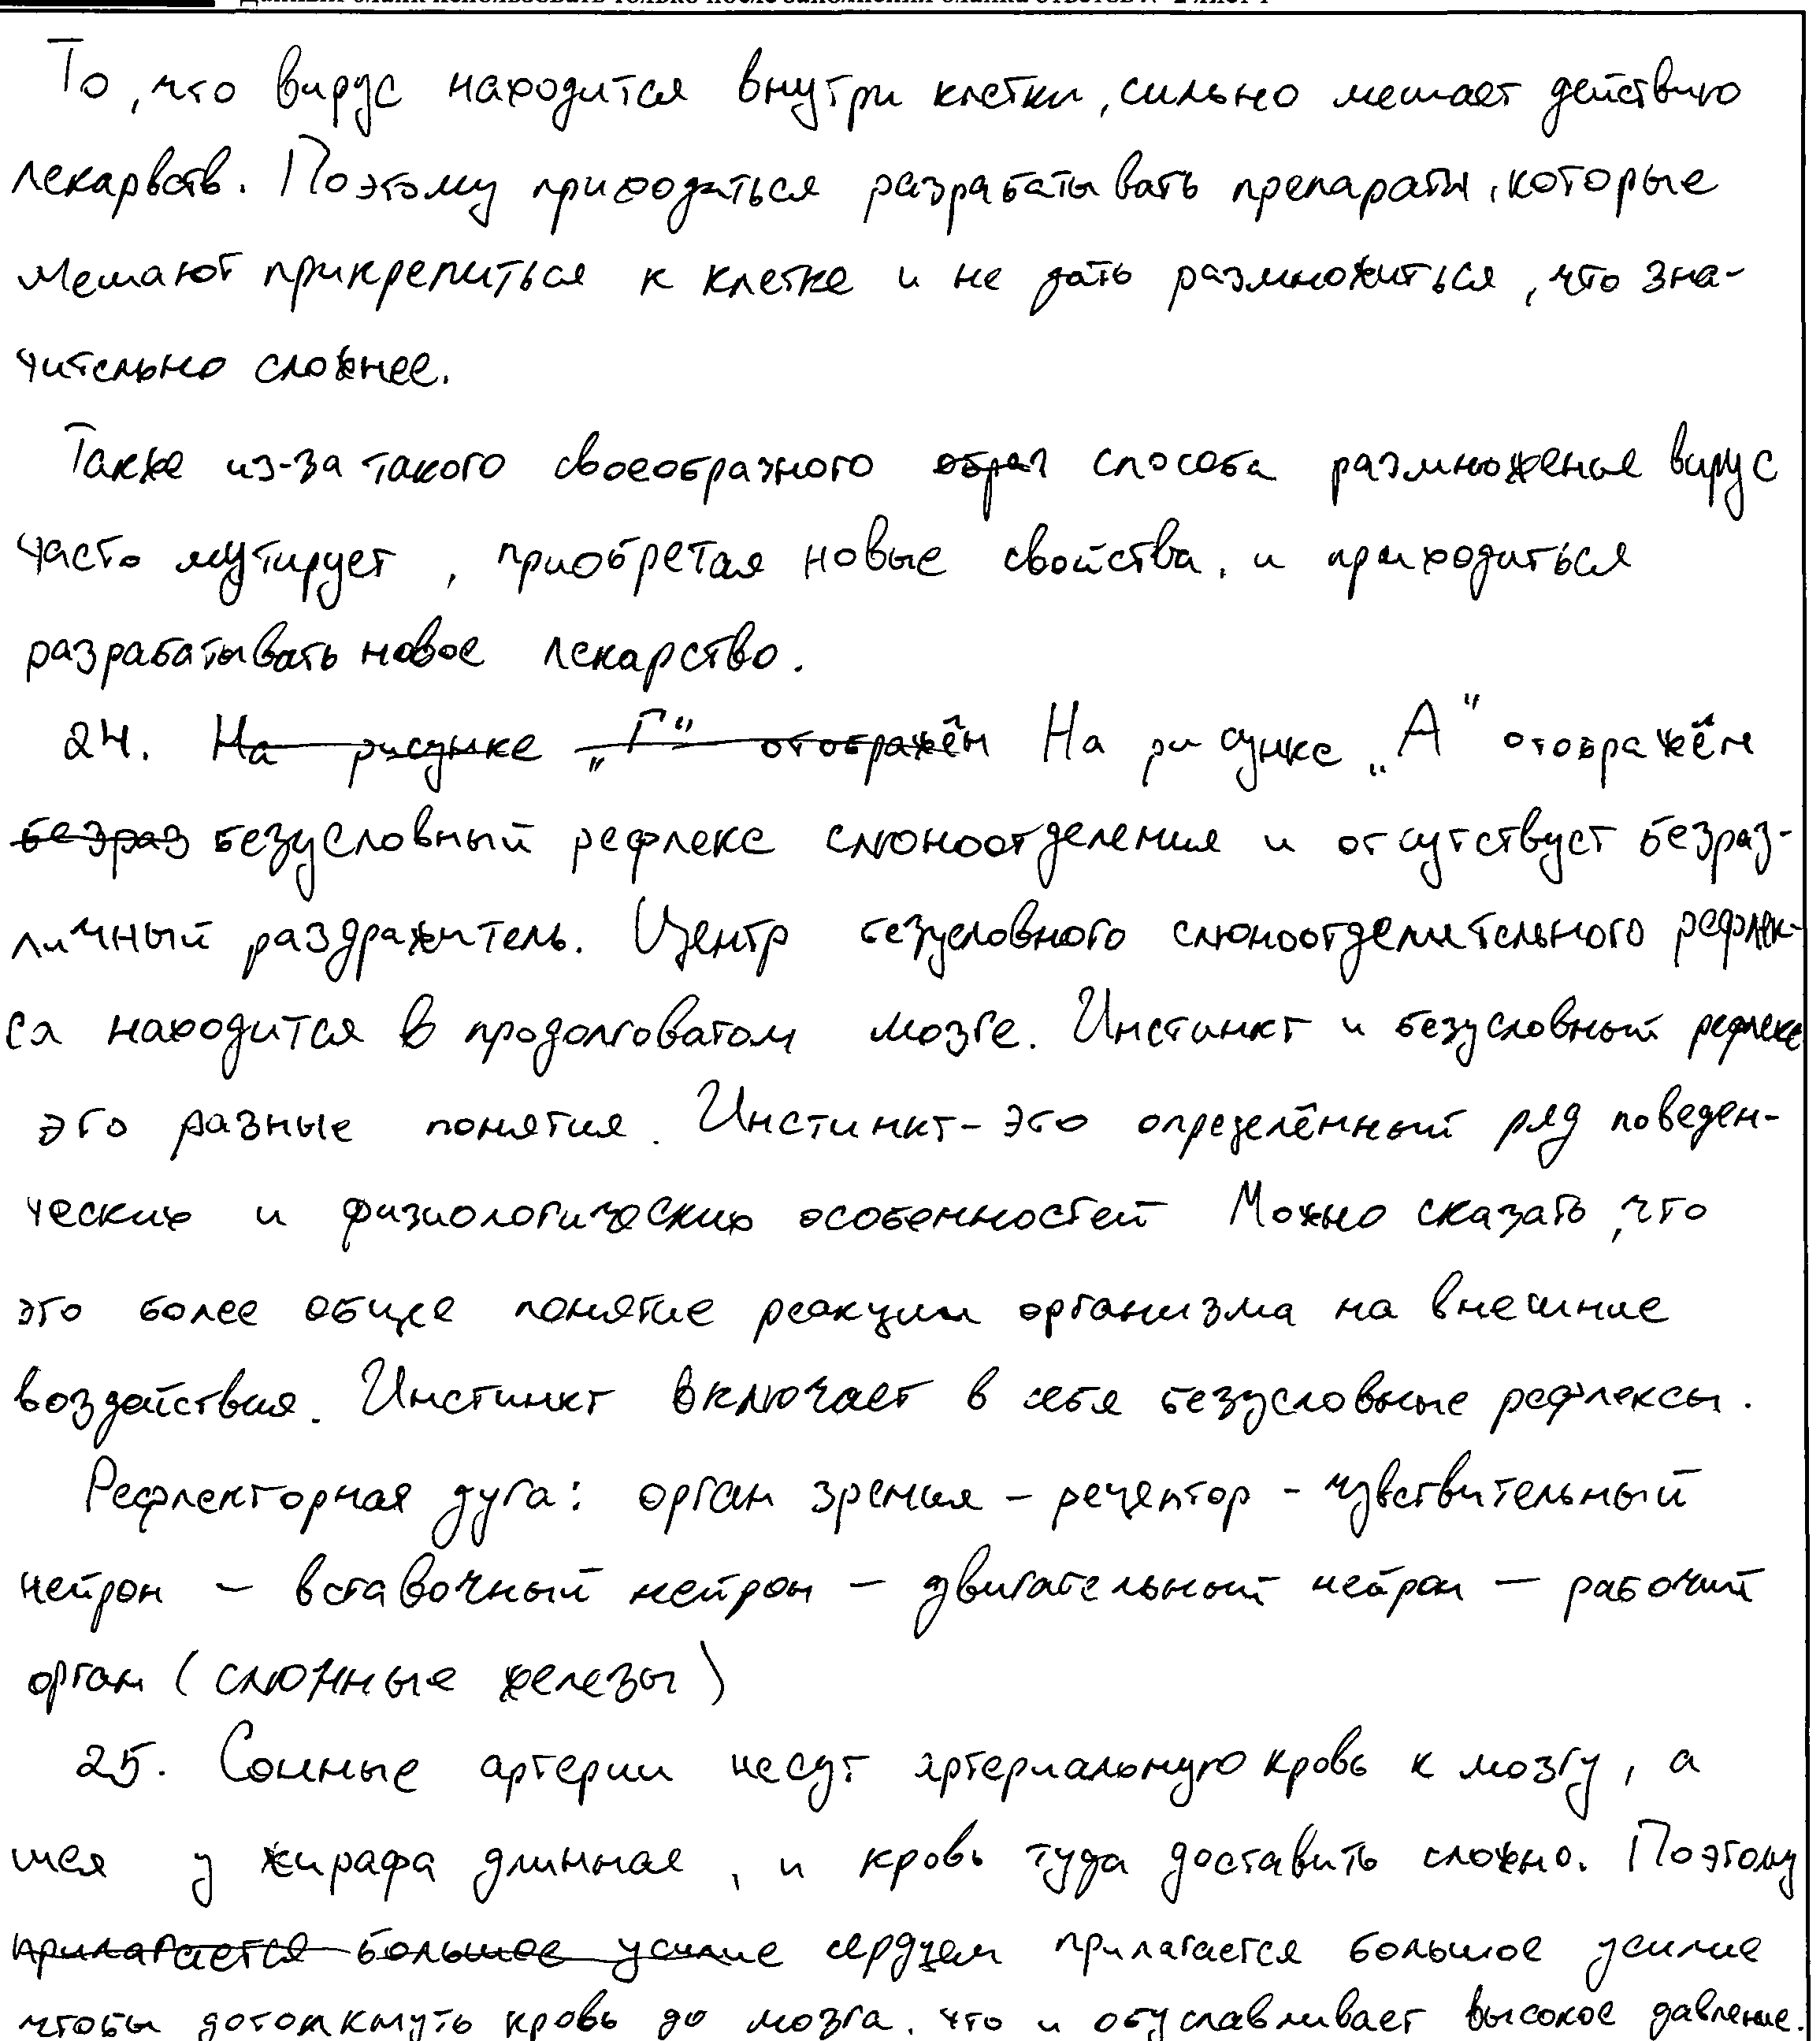 То, что вирус находится внутри клетки, сильно мешает действию
лекарвств. Поэтому приходиться разрабатывать препараты, которые
мешают прикрепиться к клетке и не дать размножиться, что зна-
чительно сложнее.
Также из-за такого своеобразного образ способа размножения вирус
часто мутирует, приобретая новые свойства, и приходиться
разрабатывать новое лекарство.
24. На рисунке „Г" отображён На рисунке „А" отображён
безраз безусловный рефлекс слюноотделения и отсутствует безраз-
личный раздражитель. Центр безусловного слюноотделительного рефлек-
са находится в продолговатом мозге. Инстинкт и безусловный рефлекс
это разные понятия. Инстинкт - это определённый ряд поведен-
ческих и физиологических особенностей Можно сказать, что
это более общее понятие реакции организма на внешние
воздействия. Инстинкт включает в себя безусловные рефлексы.
Рефлекторная дуга: орган зрения - рецептор - чувствительный
нейрон - вставочный нейрон - двигательный нейрон - рабочий
орган (слюнные железы)
25. Сонные артерии несут артериальную кровь к мозгу, а
шея у жирафа длинная, и кровь туда доставить сложно. Поэтому
прилагается большое усилие сердцем прилагается большое усилие
чтобы дотолкнуть кровь до мозга, что и обуславливает высокое давление.